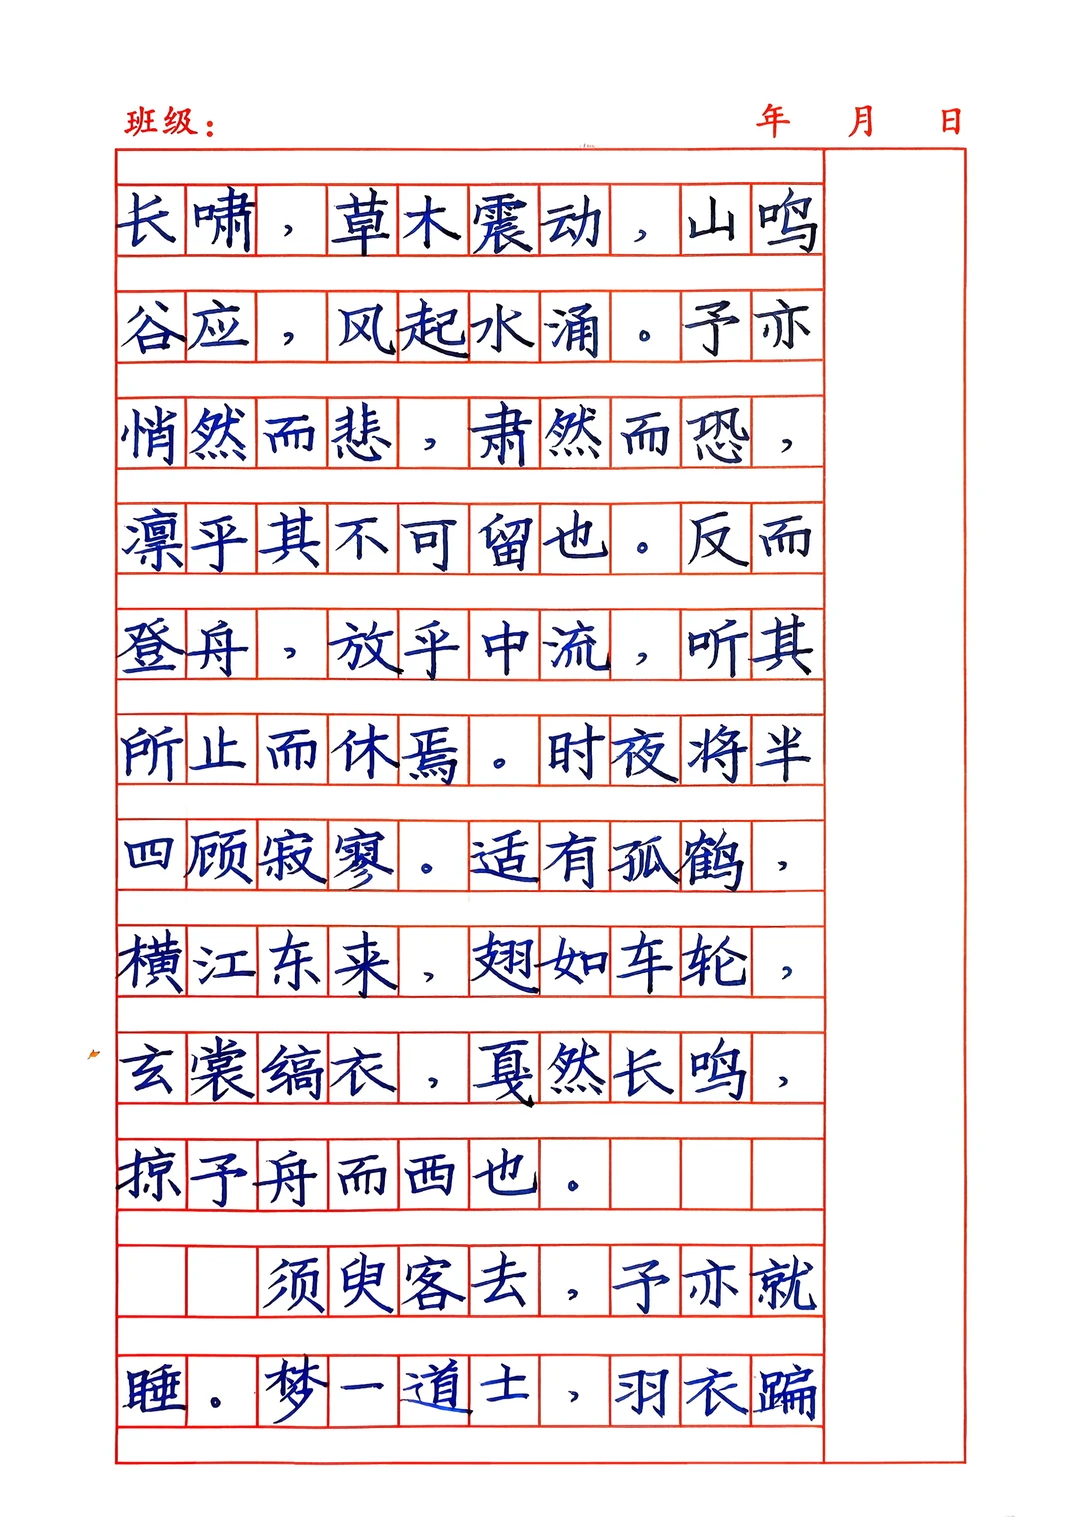 班级： 年 月 日
长啸，草木震动，山鸣
谷应，风起水涌。予亦
悄然而悲，肃然而恐，
凛乎其不可留也。反而
登舟，放乎中流，听其
所止而休焉。时夜将半
四顾寂寥。适有孤鹤，
横江东来，翅如车轮，
玄裳缟衣，戛然长鸣，
掠予舟而西也。
须臾客去，予亦就
睡。梦一道士，羽衣蹁